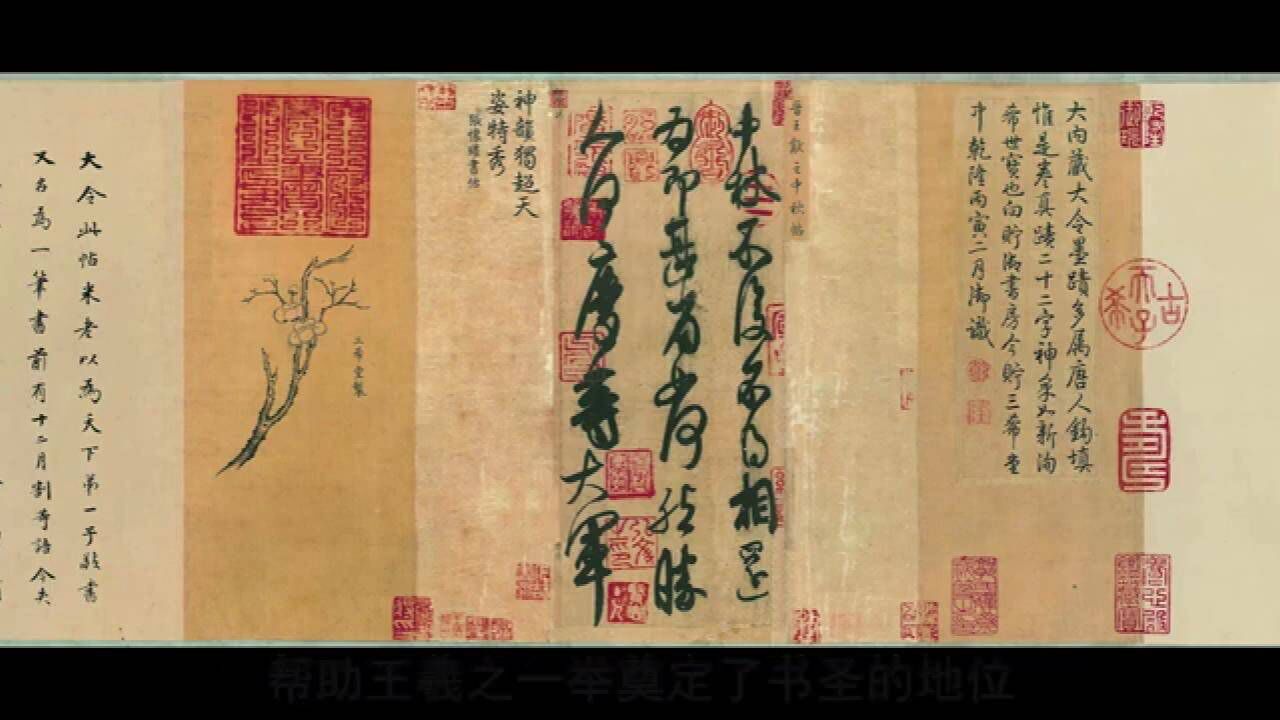 古希天子
大內藏大令墨蹟多屬唐人鉤填
惟是卷真蹟二十二字神采如新洵
希世寶也向貯御書房今貯三希堂
中乾隆丙寅二月御識
晉王獻之中秋帖
中秋不復不得相還
為即甚省如何然勝
人何慶等大軍
神韻獨超天
姿特秀
張懷瓘書估
三希堂製
大令此帖米老以為天下第一子敬書
又名為一筆書前有十二月割等語今失
帮助王羲之一举奠定了书圣的地位